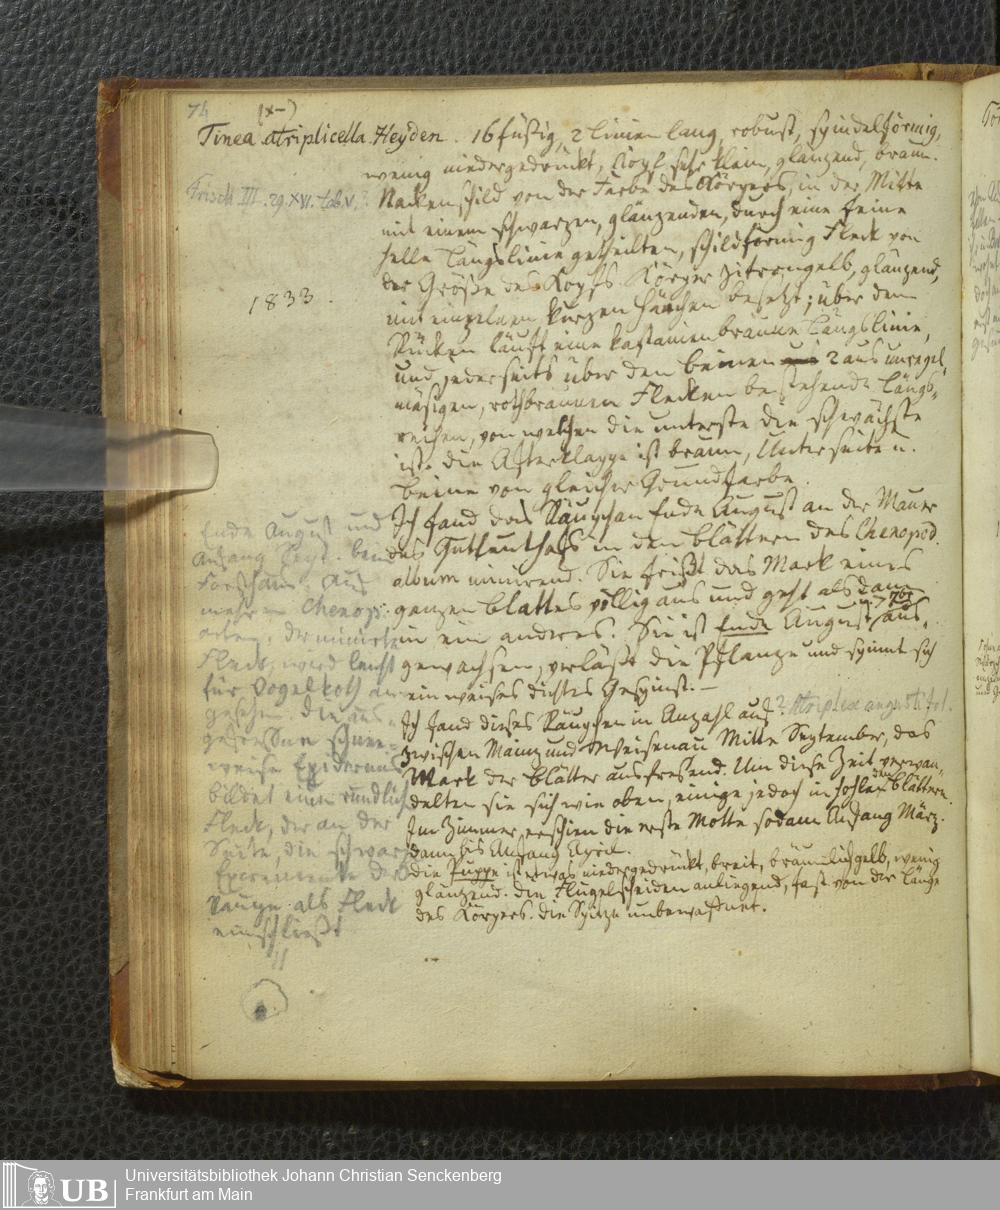 74
(x-)
Tinea atriplicella. Heyden. 16 füßig, 2 Linien lang, robust, spindelförmig,
wenig niedergedrückt, Kopf sehr klein, glänzend, braun.
Frisch III. 29. XVI. tab. V.?
Nackenschild von der Farbe des Körpers, in der Mitte
mit einem schwarzen, glänzenden, durch eine feine
helle Längslinie getheilten, schildförmig Fleck von
der Größe des Kopfs. Körper zitrongelb, glänzend,
1833.
mit einzelnen kurzen Härchen besetzt; über den
Rücken läuft eine kastanienbraune Längslinie,
und jederseits über den Beinen 2 aus unregel-
mäsigen, rothbraunen Flecken bestehende Längs-
reihen, von welchen die unterste die schwächste
ist. die Afterklappe ist braun, Unterseite u.
Beine von gleicher Grundfarbe.
Ich fand das Räupchen Ende August an der Mauer
des Gutleuthofs in den Blättern des Chenopod.
album minirend. Sie frißt das Mark eines
ganzen Blattes völlig aus und geht alsdann
in ein anderes. Sie ist Ende August aus-
gewachsen, verläßt die Pflanze und spinnt sich
ein weises dichtes Gespinst. —
Ich fand dieses Räupchen in Anzahl auf ? Atriplex angustifol.
zwischen Mainz und Weisenau Mitte September, das
Mark der Blätter ausfresend. Um diese Zeit verwan-
delten sie sich wie oben, einige jedoch in hohlen den Blättern.
Im Zimmer erschien die erste Motte sodann Anfang März.
dann bis Anfang April.
die Puppe ist etwas niedergedrückt, breit, bräunlichgelb, wenig
glänzend. die Flügelscheiden anliegend, fast von der Länge
des Körpers. die Spitze unbewaffnet.
Ende August und
Anfang Sept. beim
Forsthaus. auf
mehren Chenop:
arten. der minirte
Fleck, wird leicht
für Vogelkoth an
gesehen. die aus-
gefressene schnee-
weise Epidermis
bildet einen rundlich
Fleck, der an der
Seite, die schwarz
Excremente der
Raupe als Fleck
einschließt
Universitätsbibliothek Johann Christian Senckenberg
Frankfurt am Main
UB